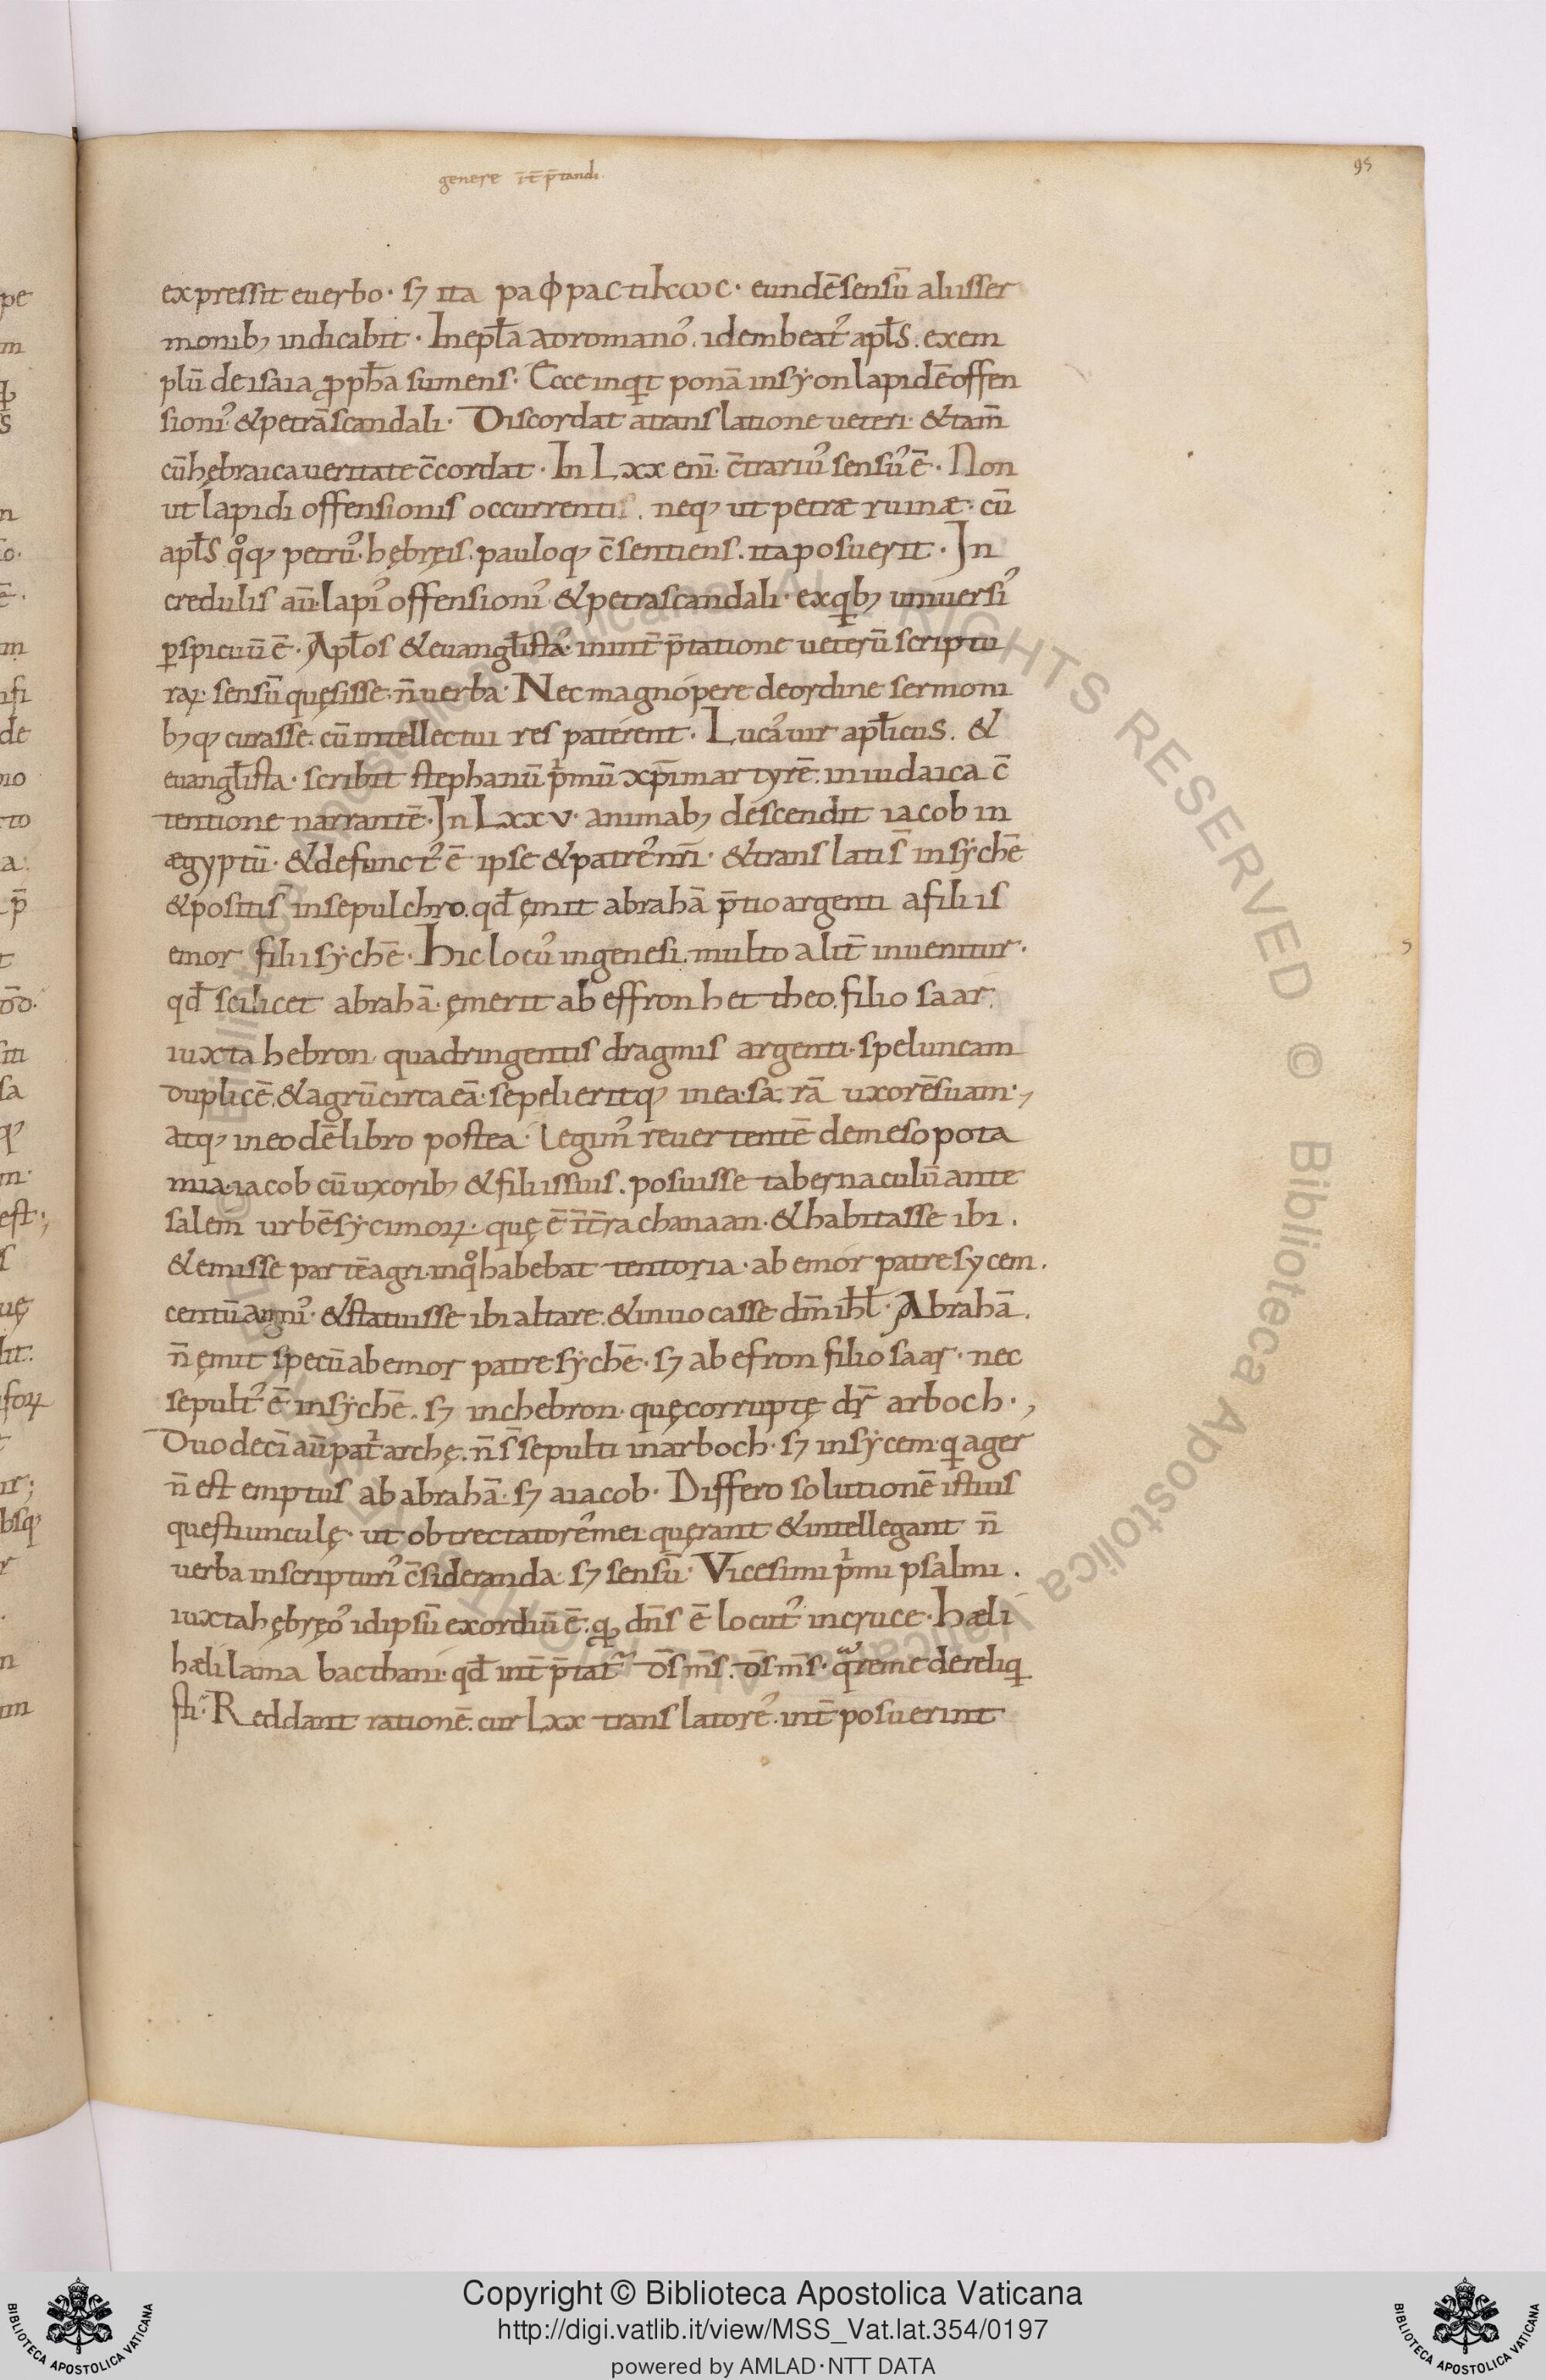 genere īt̄ p̄tandi.
95
expressit e uerbo · s; ita ΡΑΦΡΑCΤΙΚΩC · eundē sensū aliis ser
monib; indicabit · In epl̄a ad romano᷒. idem beat᷒ apl̄s. exem
plū de isaia ꝓph̄a sumens · Ecce inqͥt ponā in syon lapidē offen
sioni᷒ & petrā scandali · Discordat a translatione ueteri · & tam̄
cū hębraica ueritate c̄cordat · In Lxx eni̅ · c̄trariu᷒ sensu᷒ ē · Non
ut lapidi offensionis occurrentis. neq; ut petræ ruinæ · cū
apl̄s qͦq; petru᷒ · hębręis. pauloq; c̄sentiens. ita posuerit · In
credulis aū lapi᷒ offensioni᷒ & petra scandali · ex qͥb; uniuersi᷒
ꝑspicuū ē · Apl̄os & euangl̄ista᷒ · in int̄p̄tatione ueterū scriptu
raꝝ · sensū quęsisse · n̄ uerba · Nec magnópere de ordine sermoni
b;q; curasse. cū intellectui res paterent · Luca᷒ uir apl̄icus. &
euangl̄ista · scribit stephanū pͥmū xp̄i martyrē. in iudaica c̄
tentione narrantē · In Lxxv · animab; descendit iacob in
ægyptū · & defunct᷒ ē ipse & patre᷒ nr̄i · & translati s̄ in sychē
& positi s̄ in sepulchro. qd̄ ęmit abrahā p̄tio argenti a filiis
emor filii sychē · Hic locu᷒ in genesi. multo alit̄ inuenitur ·
qd̄ scilicet abrahā · ęmerit ab effron hettheo. filio saar.
iuxta hebron quadringentis dragmis argenti · speluncam
duplicē. & agrū circa eā · sepelieritq; in ea · sarā uxorē suam ·,
atq; in eodē libro postea · legim᷒ reuertentē de mesopota
mia · iacob cū uxorib; & filiis suis. posuisse tabernaculū ante
salem urbē sycimoꝝ · quę ē ī t̄ra chanaan · & habitasse ibi.
& emisse partē agri · in qͦ habebat tentoria · ab emor patre sycem.
centū agni᷒ · & statuisse ibi altare. & inuocasse dm̄ ihl̄ · Abrahā.
n̄ ęmit specū ab emor patre sychē · s; ab efron filio saar · nec
sepult᷒ ē in sychē. s; in chebron · quę corruptę dr̄ arboch ·,
Duodeci̅ aū patͥarchę. n̄ s̄ sepulti in arboch · s; in sycem · qͥ ager
n̄ est emptus ab abrahā · s; a iacob · Differo solutionē istius
questiunculę · ut obtrectatore᷒ mei quęrant & intellegant n̄
uerba in scripturi᷒ c̄sideranda · s; sensū · Vicesimi pͥmi psalmi.
iuxta hębręo᷒ id ipsū exordiū ē. qͦ dn̄s ē locut᷒ in cruce · hæli
hæli lama bacthani · qd̄ int̄p̄tat᷑ ds̄ ms̄. ds̄ ms̄ · qᷓre me dereliqͥ
sti · Reddant rationē. cur Lxx translatore᷒. int̄posuerint
Copyright © Biblioteca Apostolica Vaticana
http://digi.vatlib.it/view/MSS_Vat.lat.354/0197
powered by AMLAD·NTT DATA